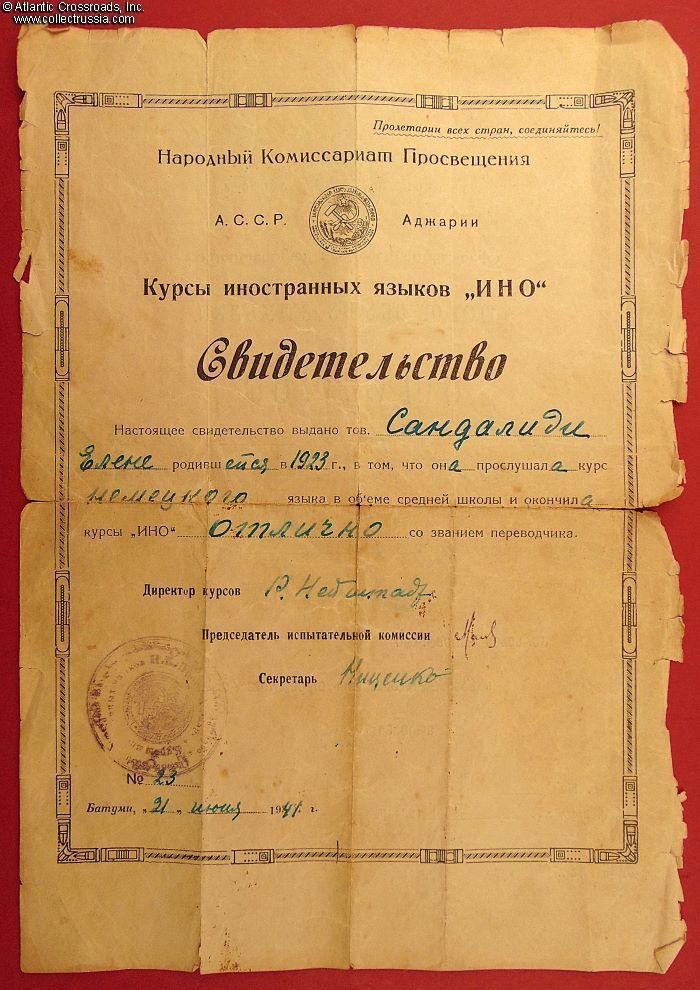 © Atlantic Crossroads, Inc.
www.collectrussia.com
Пролетарии всех стран, соединяйтесь!
Народный Комиссариат Просвещения
А.С.С.Р. Аджарии
Курсы иностранных языков „ИНО“
Свидетельство
Настоящее свидетельство выдано тов. Сандалиди
Елене родившейся в 1923 г., в том, что она прослушала курс
немецкого языка в об'еме средней школы и окончила
курсы „ИНО“ отлично со званием переводчика.
Директор курсов
Председатель испытательной комиссии
Секретарь Ниценко
№ 23
Батуми, „21„ июня 1941 г.